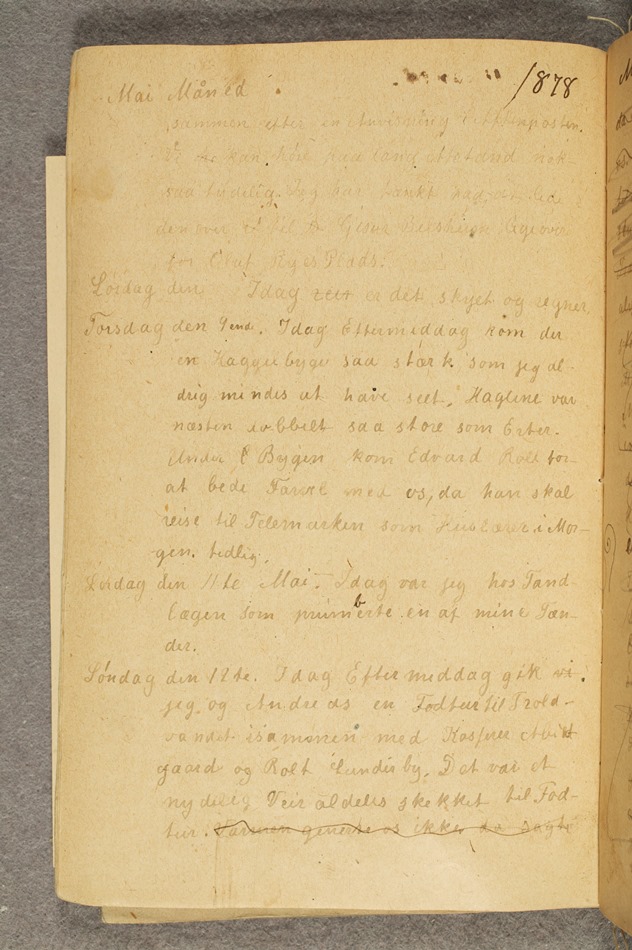 Mai Måned. 1878
sammen efter en Anvisning i Aftenposten.
kan høre paa lang Afstand nok-
saa tydelig. Jeg har tænkt
den over til
for Olaf Ryes Plads.
Lørdag den Idag er det skyet og regner.
Torsdag den 9ende. Idag Eftermiddag kom der
en Haggelbyge saa stærk som jeg al-
drig mindes at have seet. Haglene var
næsten dobbelt saa store som Erter.
Under Bygen kom Edvard Rolt for
at bede Farvel med os, da han skal
reise til Telemarken som Huslærer i Mor-
gen tidlig.
Lørdag den 11te Mai. Idag var jeg hos Tand-
lægen som plumberte en af mine Tæn-
der.
Søndag den 12te. Idag Eftermiddag gik vi.
jeg og Andreas en Fodtur til Trold-
vandet isammen med Kasper
gaard og Rolt Lundeby. Det var et
nydelig Veir aldeles skekket til Fod-
tur. Varmen generte os ikke, da sagte